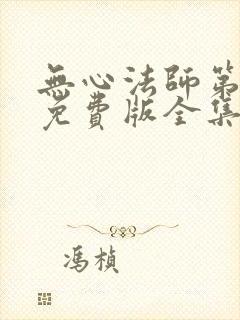 無心法師第
免費版全集
馮楨